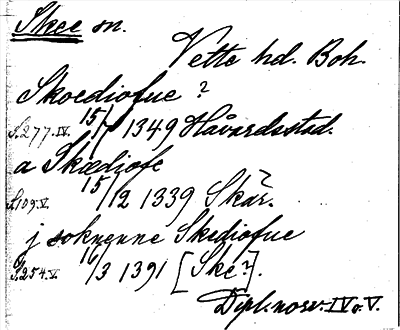 Skee sn.
Vette hd. Boh.
Skoediofue?
S.277.IV. 15/7 1349 Håvardsstad.
a Skædiofe
S.109.V. 15/12 1339 Skär.
j soknenne Skediofue
S.254.V. 16/3 1391 [Ske?].
Dipl. norv. IV o. V.